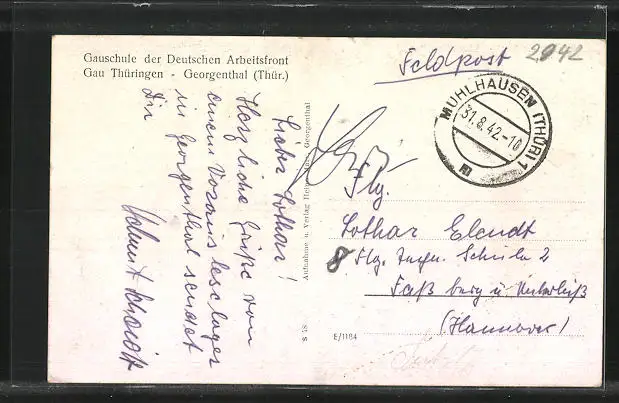 Gauschule der Deutschen Arbeitsfront
Gau Thüringen - Georgenthal (Thür.)
Lieber Lothar!
Herzliche Grüße von
einem Vorausleselager
in Georgenthal sendet
Dir
Helmut Schmidt
Aufnahme u. Verlag Georgenthal
S 18
E/1184
Feldpost
2942
MÜHLHAUSEN (THÜR) 1
31.8.42.-10
m
Flg.
Lothar Elendt
8 Flg. Schule 2
Faßberg ü. Unterlüß
(Hannover)